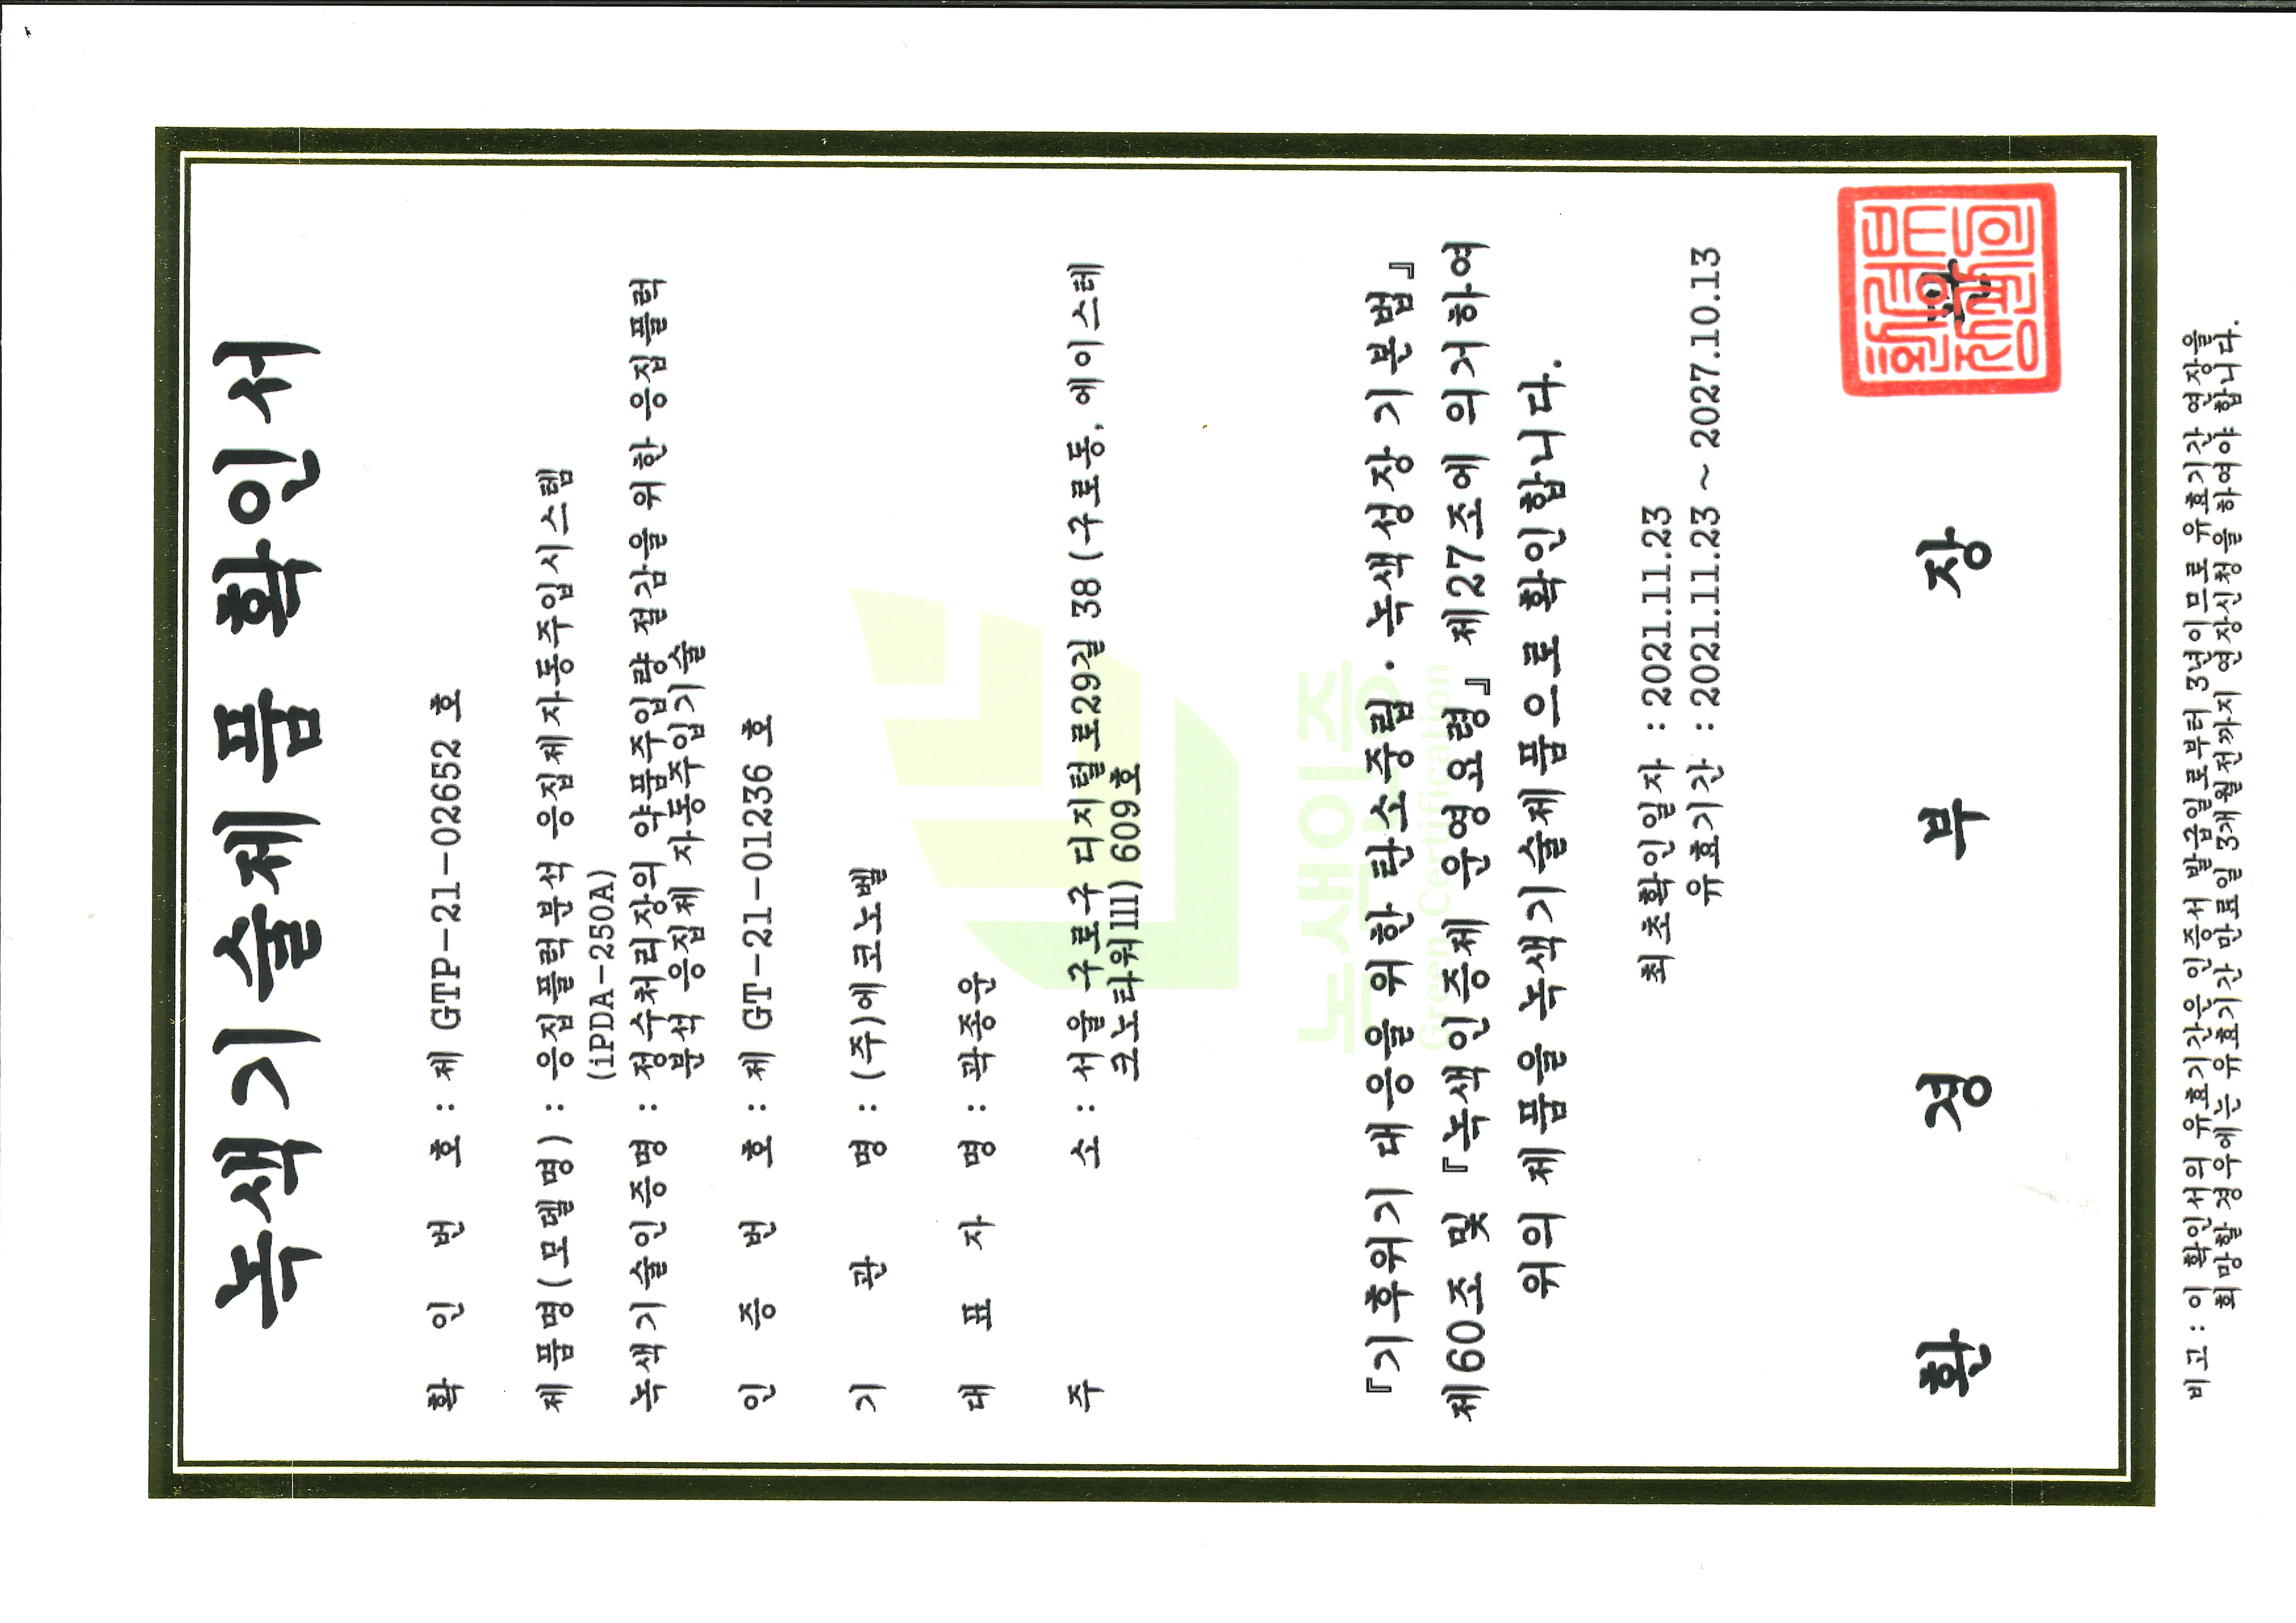 녹색기술제품 확인서
확 인 번 호 : 제 GTP-21-02652 호
제품명(모델명) : 응집플럭분석 응집제자동주입시스템
(iPDA-250A)
녹색기술인증명 : 정수처리장의 약품주입량 절감을 위한 응집플럭
분석 응집제 자동주입기술
인 증 번 호 : 제 GT-21-01236 호
기 관 명 : (주)에코노벨
대 표 자 명 : 곽종운
주 소 : 서울 구로구 디지털로29길 38 (구로동, 에이스테
크노타워III) 609호
녹색인증
Green Certification
『기후위기 대응을 위한 탄소중립·녹색성장 기본법』
제60조 및 『녹색인증제 운영요령』 제27조에 의거하여
위의 제품을 녹색기술제품으로 확인합니다.
최초확인일자 : 2021.11.23
유효기간 : 2021.11.23 ~ 2027.10.13
환 경 부 장 관
비고 : 이 확인서의 유효기간은 인증서 발급일로부터 3년이므로 유효기간 연장을
희망할 경우에는 유효기간 만료일 3개월전까지 연장신청을 하여야 합니다.